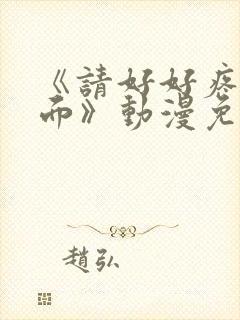 《請好好疼
而》動漫免
趙弘